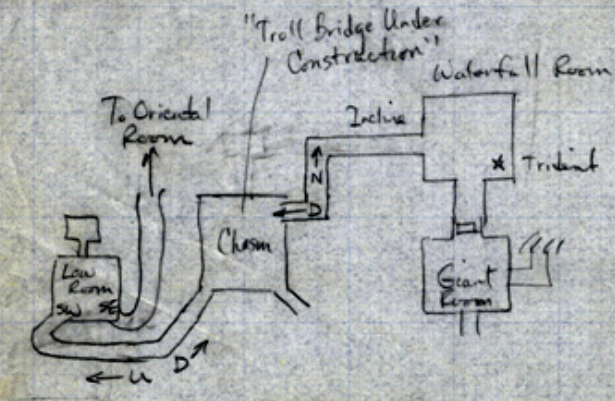 "Troll Bridge Under
Construction"
Waterfall Room
To Oriental
Room
Incline
N
Trident
D
Chasm
Low
Room
SW SE
Giant
Room
U D